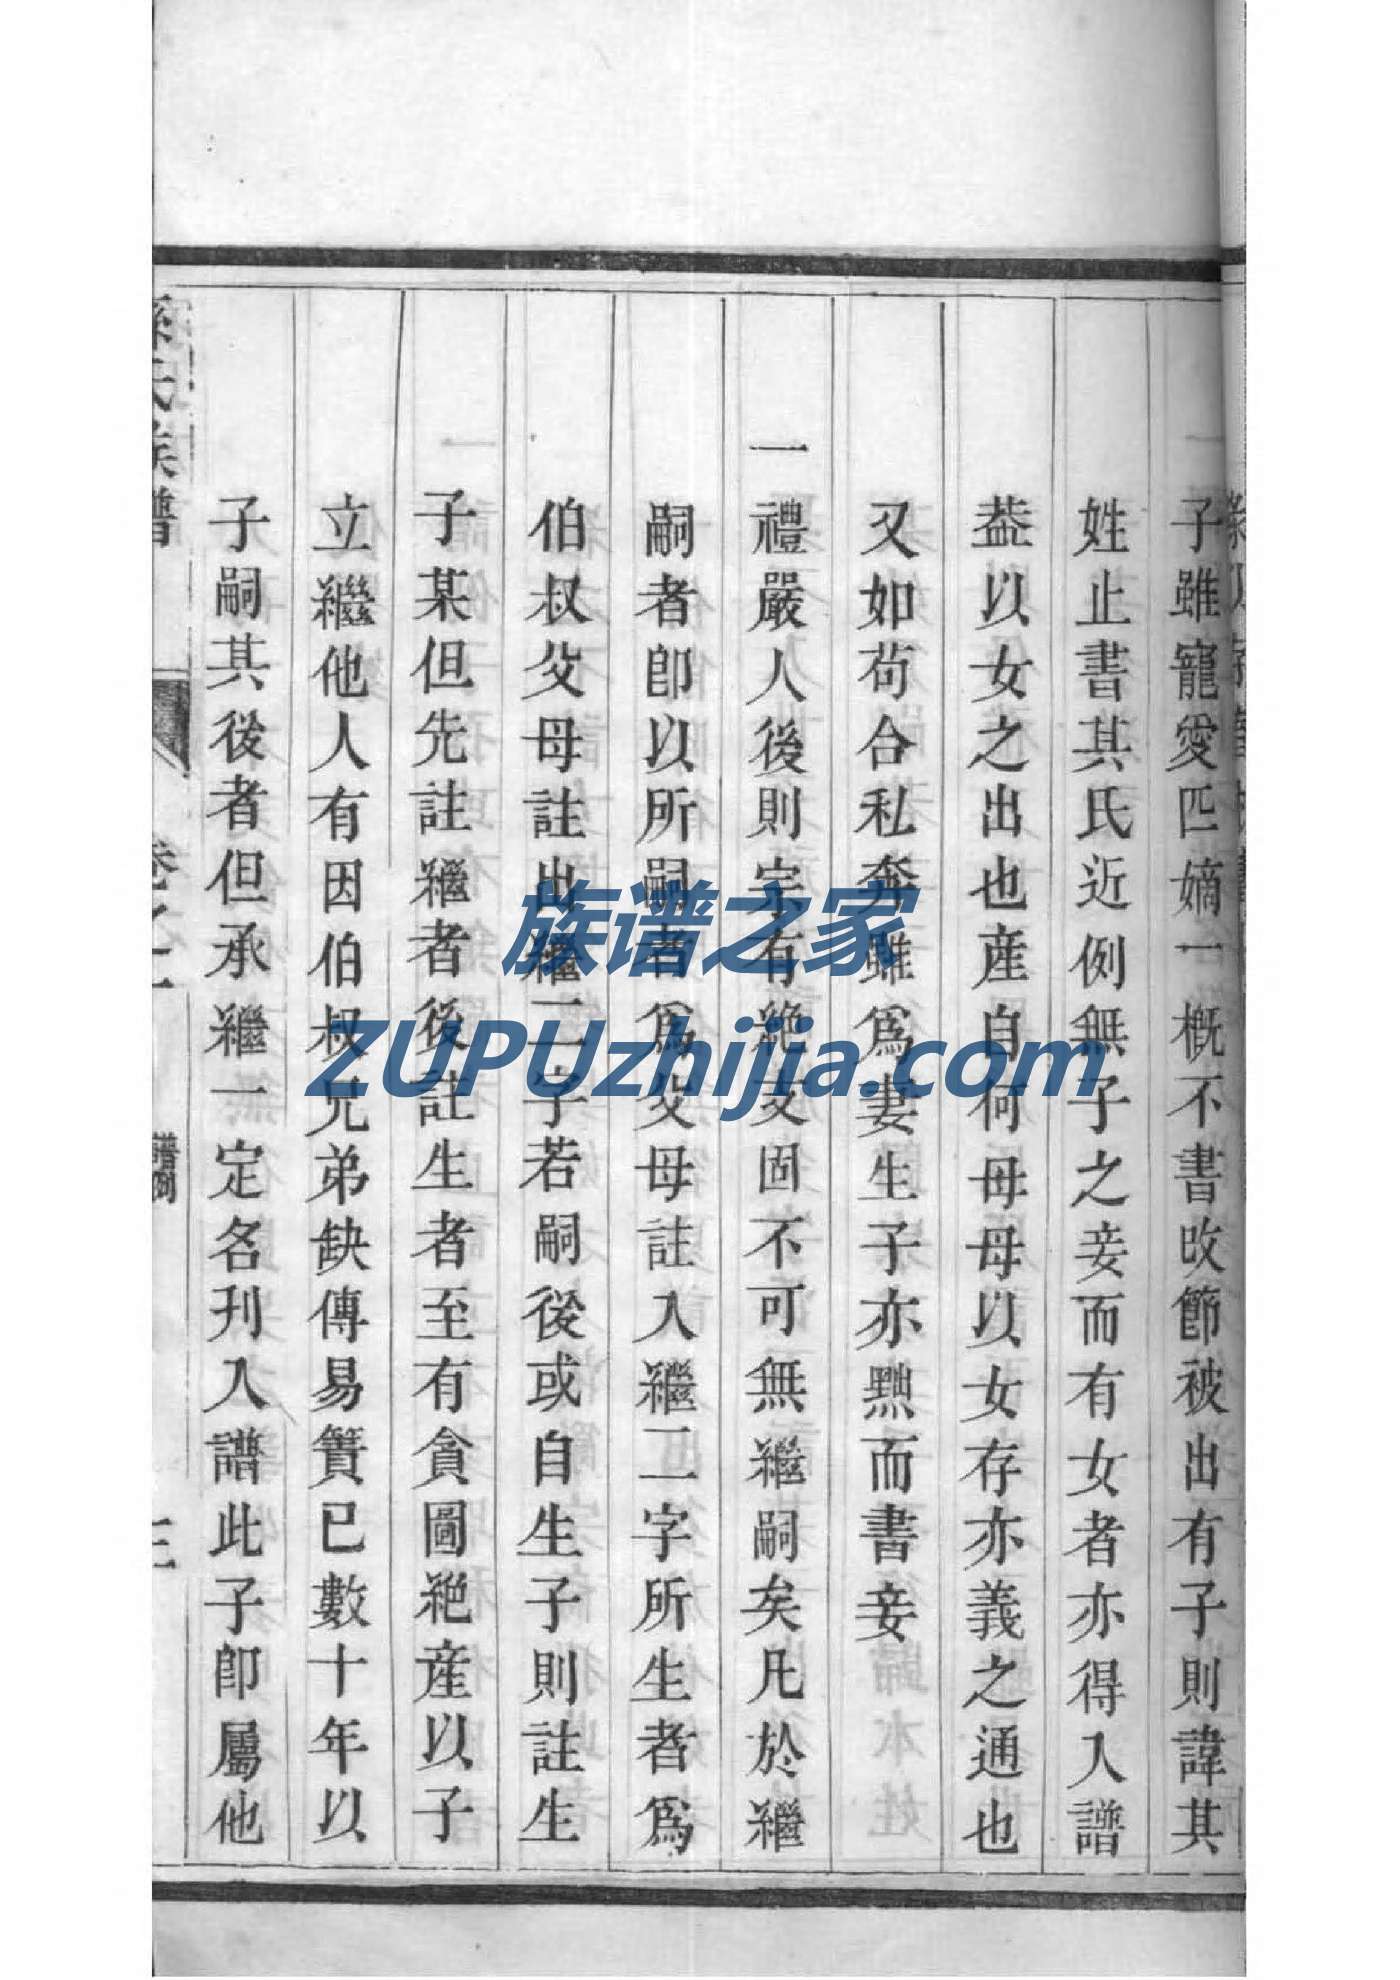 子雖寵愛匹嫡一概不書改節被出有子則諱其
姓止書其氏近例無子之妾而有女者亦得入譜
葢以女之出也產自何母母以女存亦義之通也
又如苟合私奔雖爲妻生子亦黜而書妾
一禮嚴人後則宗有絶支固不可無繼嗣矣凡於繼
嗣者卽以所嗣者爲父母註入繼二字所生者爲
伯叔父母註出繼二字若嗣後或自生子則註生
子某但先註繼者後註生者至有貪圖絶產以子
立繼他人有因伯叔兄弟缺傳易簀已數十年以
子嗣其後者但承繼一定名刊入譜此子卽屬他
孫氏族譜
卷之一
譜例
三
族谱之家
ZUPUzhijia.com